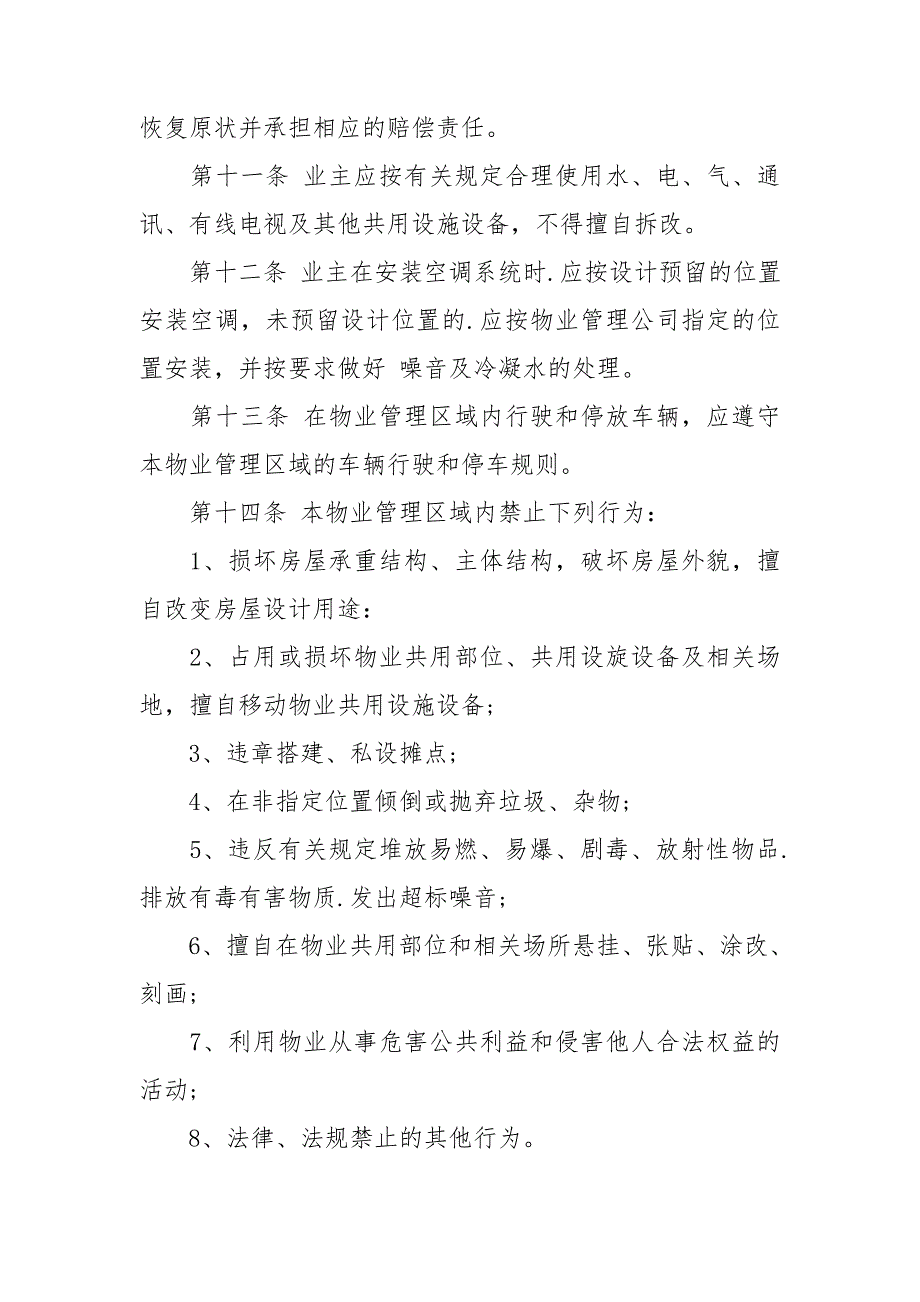 恢复原状并承担相应的赔偿责任。
第十一条 业主应按有关规定合理使用水、电、气、通
讯、有线电视及其他共用设施设备，不得擅自拆改。
第十二条 业主在安装空调系统时.应按设计预留的位置
安装空调，未预留设计位置的.应按物业管理公司指定的位
置安装，并按要求做好 噪音及冷凝水的处理。
第十三条 在物业管理区域内行驶和停放车辆，应遵守
本物业管理区域的车辆行驶和停车规则。
第十四条 本物业管理区域内禁止下列行为：
1、损坏房屋承重结构、主体结构，破坏房屋外貌，擅
自改变房屋设计用途：
2、占用或损坏物业共用部位、共用设旋设备及相关场
地，擅自移动物业共用设施设备;
3、违章搭建、私设摊点;
4、在非指定位置倾倒或抛弃垃圾、杂物;
5、违反有关规定堆放易燃、易爆、剧毒、放射性物品.
排放有毒有害物质.发出超标噪音;
6、擅自在物业共用部位和相关场所悬挂、张贴、涂改、
刻画;
7、利用物业从事危害公共利益和侵害他人合法权益的
活动;
8、法律、法规禁止的其他行为。